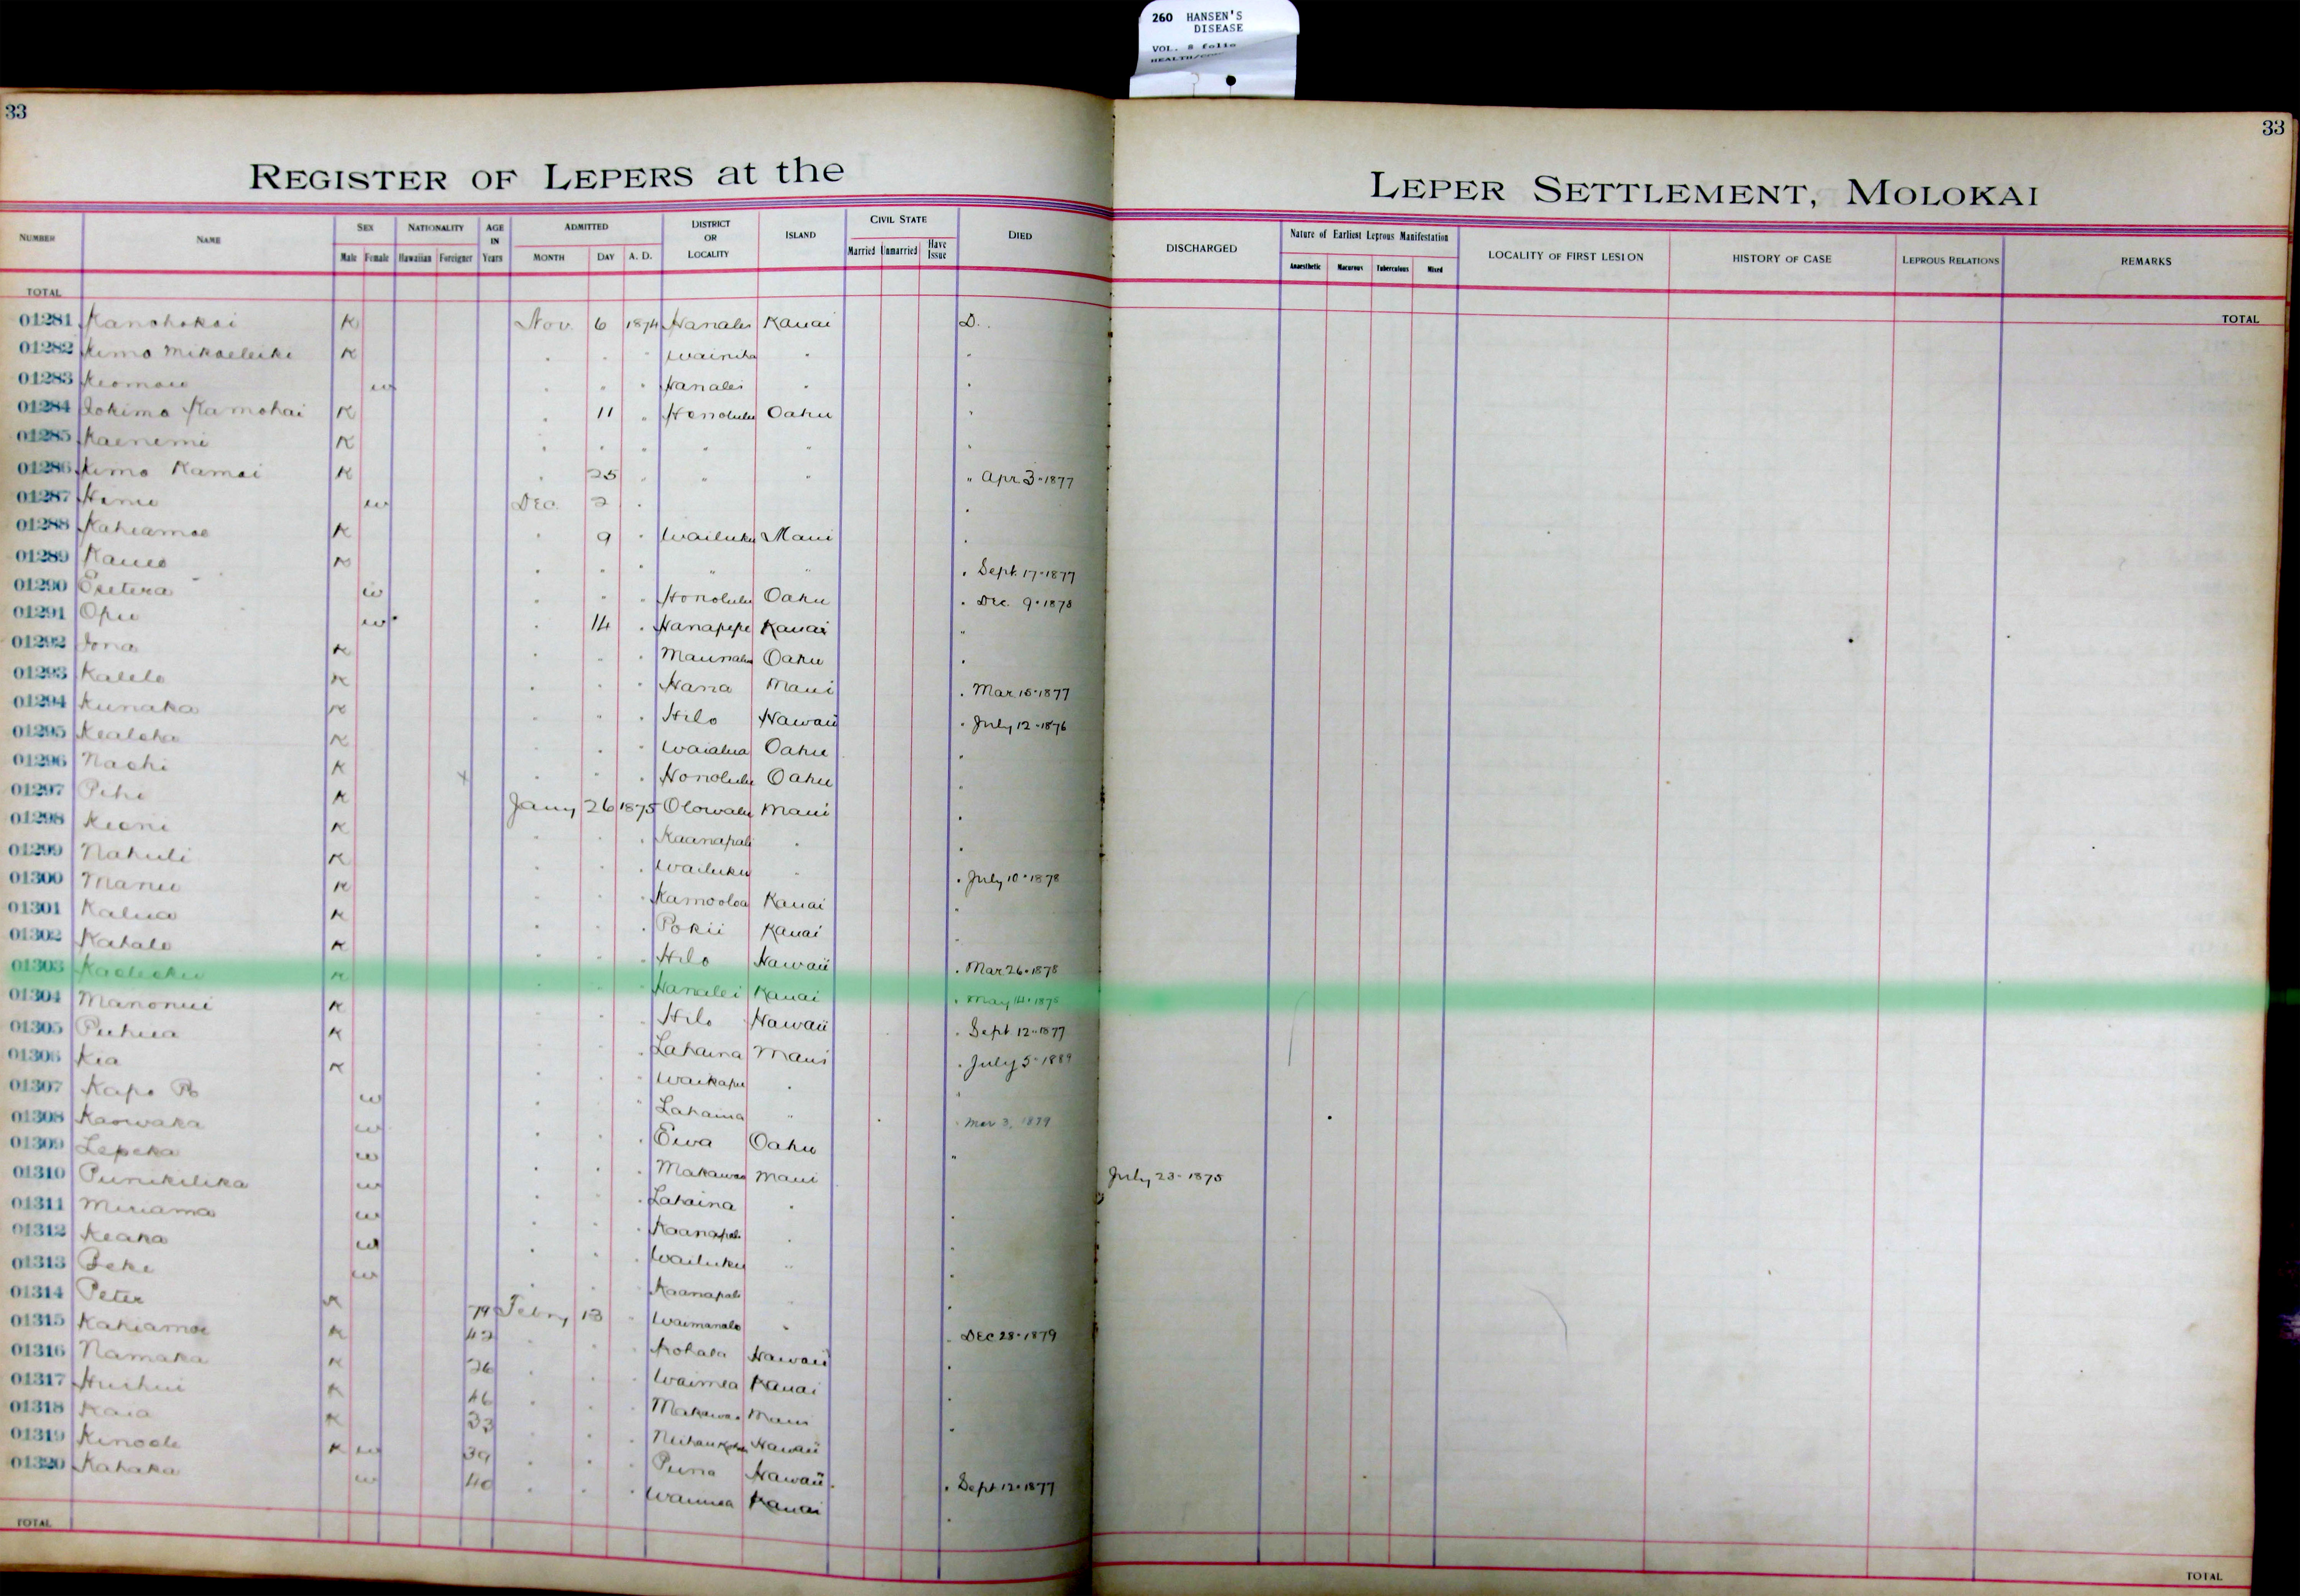 260 HANSEN'S
DISEASE
VOL. 8 folio
33
33
REGISTER OF LEPERS at the LEPER SETTLEMENT, MOLOKAI
NUMBER NAME SEX Male Female NATIONALITY Hawaiian Foreigner AGE IN Years ADMITTED MONTH DAY A. D. DISTRICT OR LOCALITY ISLAND CIVIL STATE Married Unmarried Have Issue DIED DISCHARGED Nature of Earliest Leprous Manifestation Anaesthetic Macurous Tuberculous Mixed LOCALITY OF FIRST LESION HISTORY OF CASE LEPROUS RELATIONS REMARKS
TOTAL TOTAL
01281 Kanohokai K Nov. 6 1874 Hanalei Kauai D.
01282 Kimo Mikaeleike K " " " Wainiha " "
01283 Keomau w " " " Hanalei " "
01284 Iokimo Kamohai K " 11 " Honolulu Oahu "
01285 Kaenemi K " " " " " "
01286 Kimo Kamai K " 25 " " " " Apr 3-1877
01287 w Dec. 2 " "
01288 Kahiamoe K " 9 " Wailuku Maui "
01289 Kaueo K " " " " " " Sept. 17-1877
01290 w " " " Honolulu Oahu " Dec. 9-1878
01291 Opu w " 14 " Hanapepe Kauai "
01292 Iona K " " " Maunalua Oahu "
01293 Kalelo K " " " Hana Maui " Mar 15-1877
01294 Kunaka K " " " Hilo Hawaii " July 12-1876
01295 Kealoha K " " " Waialua Oahu "
01296 Naohi K x " " " Honolulu Oahu "
01297 Pihi K Jany 26 1875 Olowalu Maui "
01298 Keoni K " " " Kaanapali " "
01299 Nahuli K " " " Wailuku " " July 10-1878
01300 Manu K " " " Kamooloa Kauai "
01301 Kalua K " " " Pokii Kauai "
01302 Kahalo K " " " Hilo Hawaii " Mar 26-1878
01303 K " " " Hanalei Kauai " May 14-1875
01304 Manonui K " " " Hilo Hawaii " Sept 12-1877
01305 Puhua K " " " Lahaina Maui " July 5-1889
01306 Kia K " " " Waikapu " "
01307 Kapo Po w " " " Lahaina " " Mar 3, 1879
01308 Kaowaka w " " " Ewa Oahu "
01309 Lepeka w " " " Makawao Maui July 23-1875
01310 Punikilika w " " " Lahaina " "
01311 Miriama w " " " Kaanapali " "
01312 Keaka w " " " Wailuku " "
01313 Beke w " " " Kaanapali " "
01314 Peter K 79 Febry 13 " Waimanalo " " Dec 28-1879
01315 Kahiamoe K 42 " " " Kohala Hawaii "
01316 Namaka K 26 " " " Waimea Kauai "
01317 Huihui K 46 " " " Makawao Maui "
01318 Kaia K 33 " " " Hawaii
01319 Kinoole K w 39 " " " Puna Hawaii " Sept 12-1877
01320 Kahaka w 40 " " " Waimea Kauai "
TOTAL TOTAL